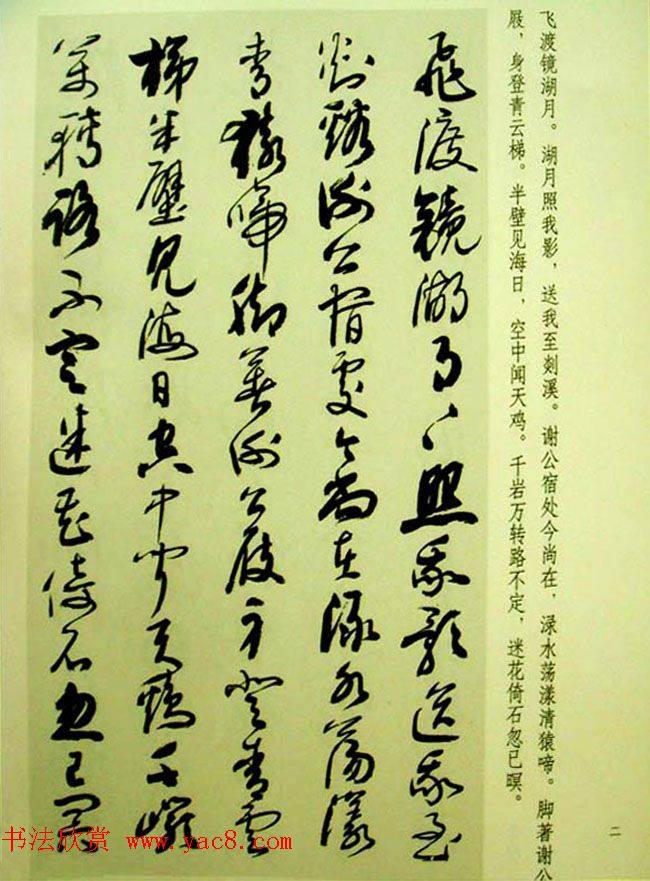 飞渡镜湖月。湖月照我影，送我至剡溪。谢公宿处今尚在，渌水荡漾清猿啼。脚著谢公
屐，身登青云梯。半壁见海日，空中闻天鸡。千岩万转路不定，迷花倚石忽已暝。
二
飛渡鏡湖月〻照我影送我至
剡谿謝公宿處今尚在渌水蕩漾
青猿啼脚著謝公屐身登青雲
梯半壁見海日空中聞天鷄千巖
萬轉路不定迷花倚石忽已暝
书法欣赏 www.yac8.com